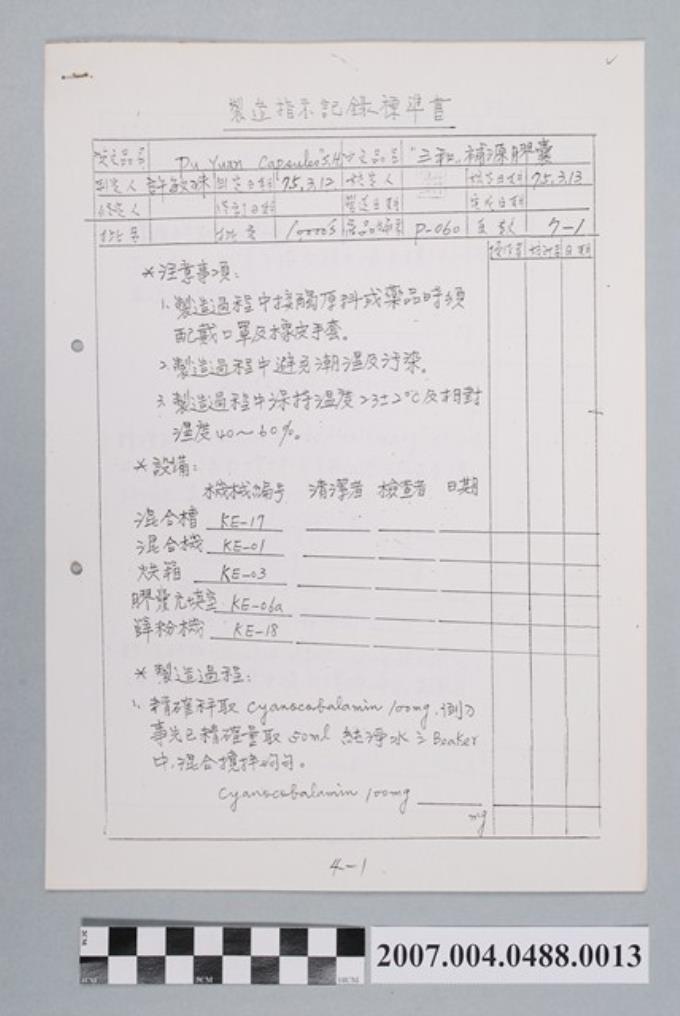 製造指示記錄標準書
英文品名 Pu Yuan Capsules"S.H" 中文品名 "三和"補源膠囊
制定人 許敏珠 制定日期 75.3.12 核定人 核定日期 75.3.13
修定人 修訂日期 製造日期 完成日期
批號 批量 10000's 產品編號 P-060 頁數 7-1
操作者 核對者 日期
*注意事項:
1. 製造過程中接觸原料或藥品時須
配戴口罩及橡皮手套。
2. 製造過程中避免潮溼及汚染。
3. 製造過程中保持溫度23±2°C及相對
溼度40~60%。
*設備:
機械編号 清潔者 檢查者 日期
混合槽 KE-17
混合機 KE-01
烘箱 KE-03
膠囊充填室 KE-06a
篩粉機 KE-18
*製造過程:
1. 精確秤取 cyanocobalamin 100mg, 倒入
事先已精確量取 50ml 純淨水之 Beaker
中, 混合攪拌均勻。
cyanocobalamin 100mg
mg
4-1
0CM
4CM 5CM 10CM
2007.004.0488.0013